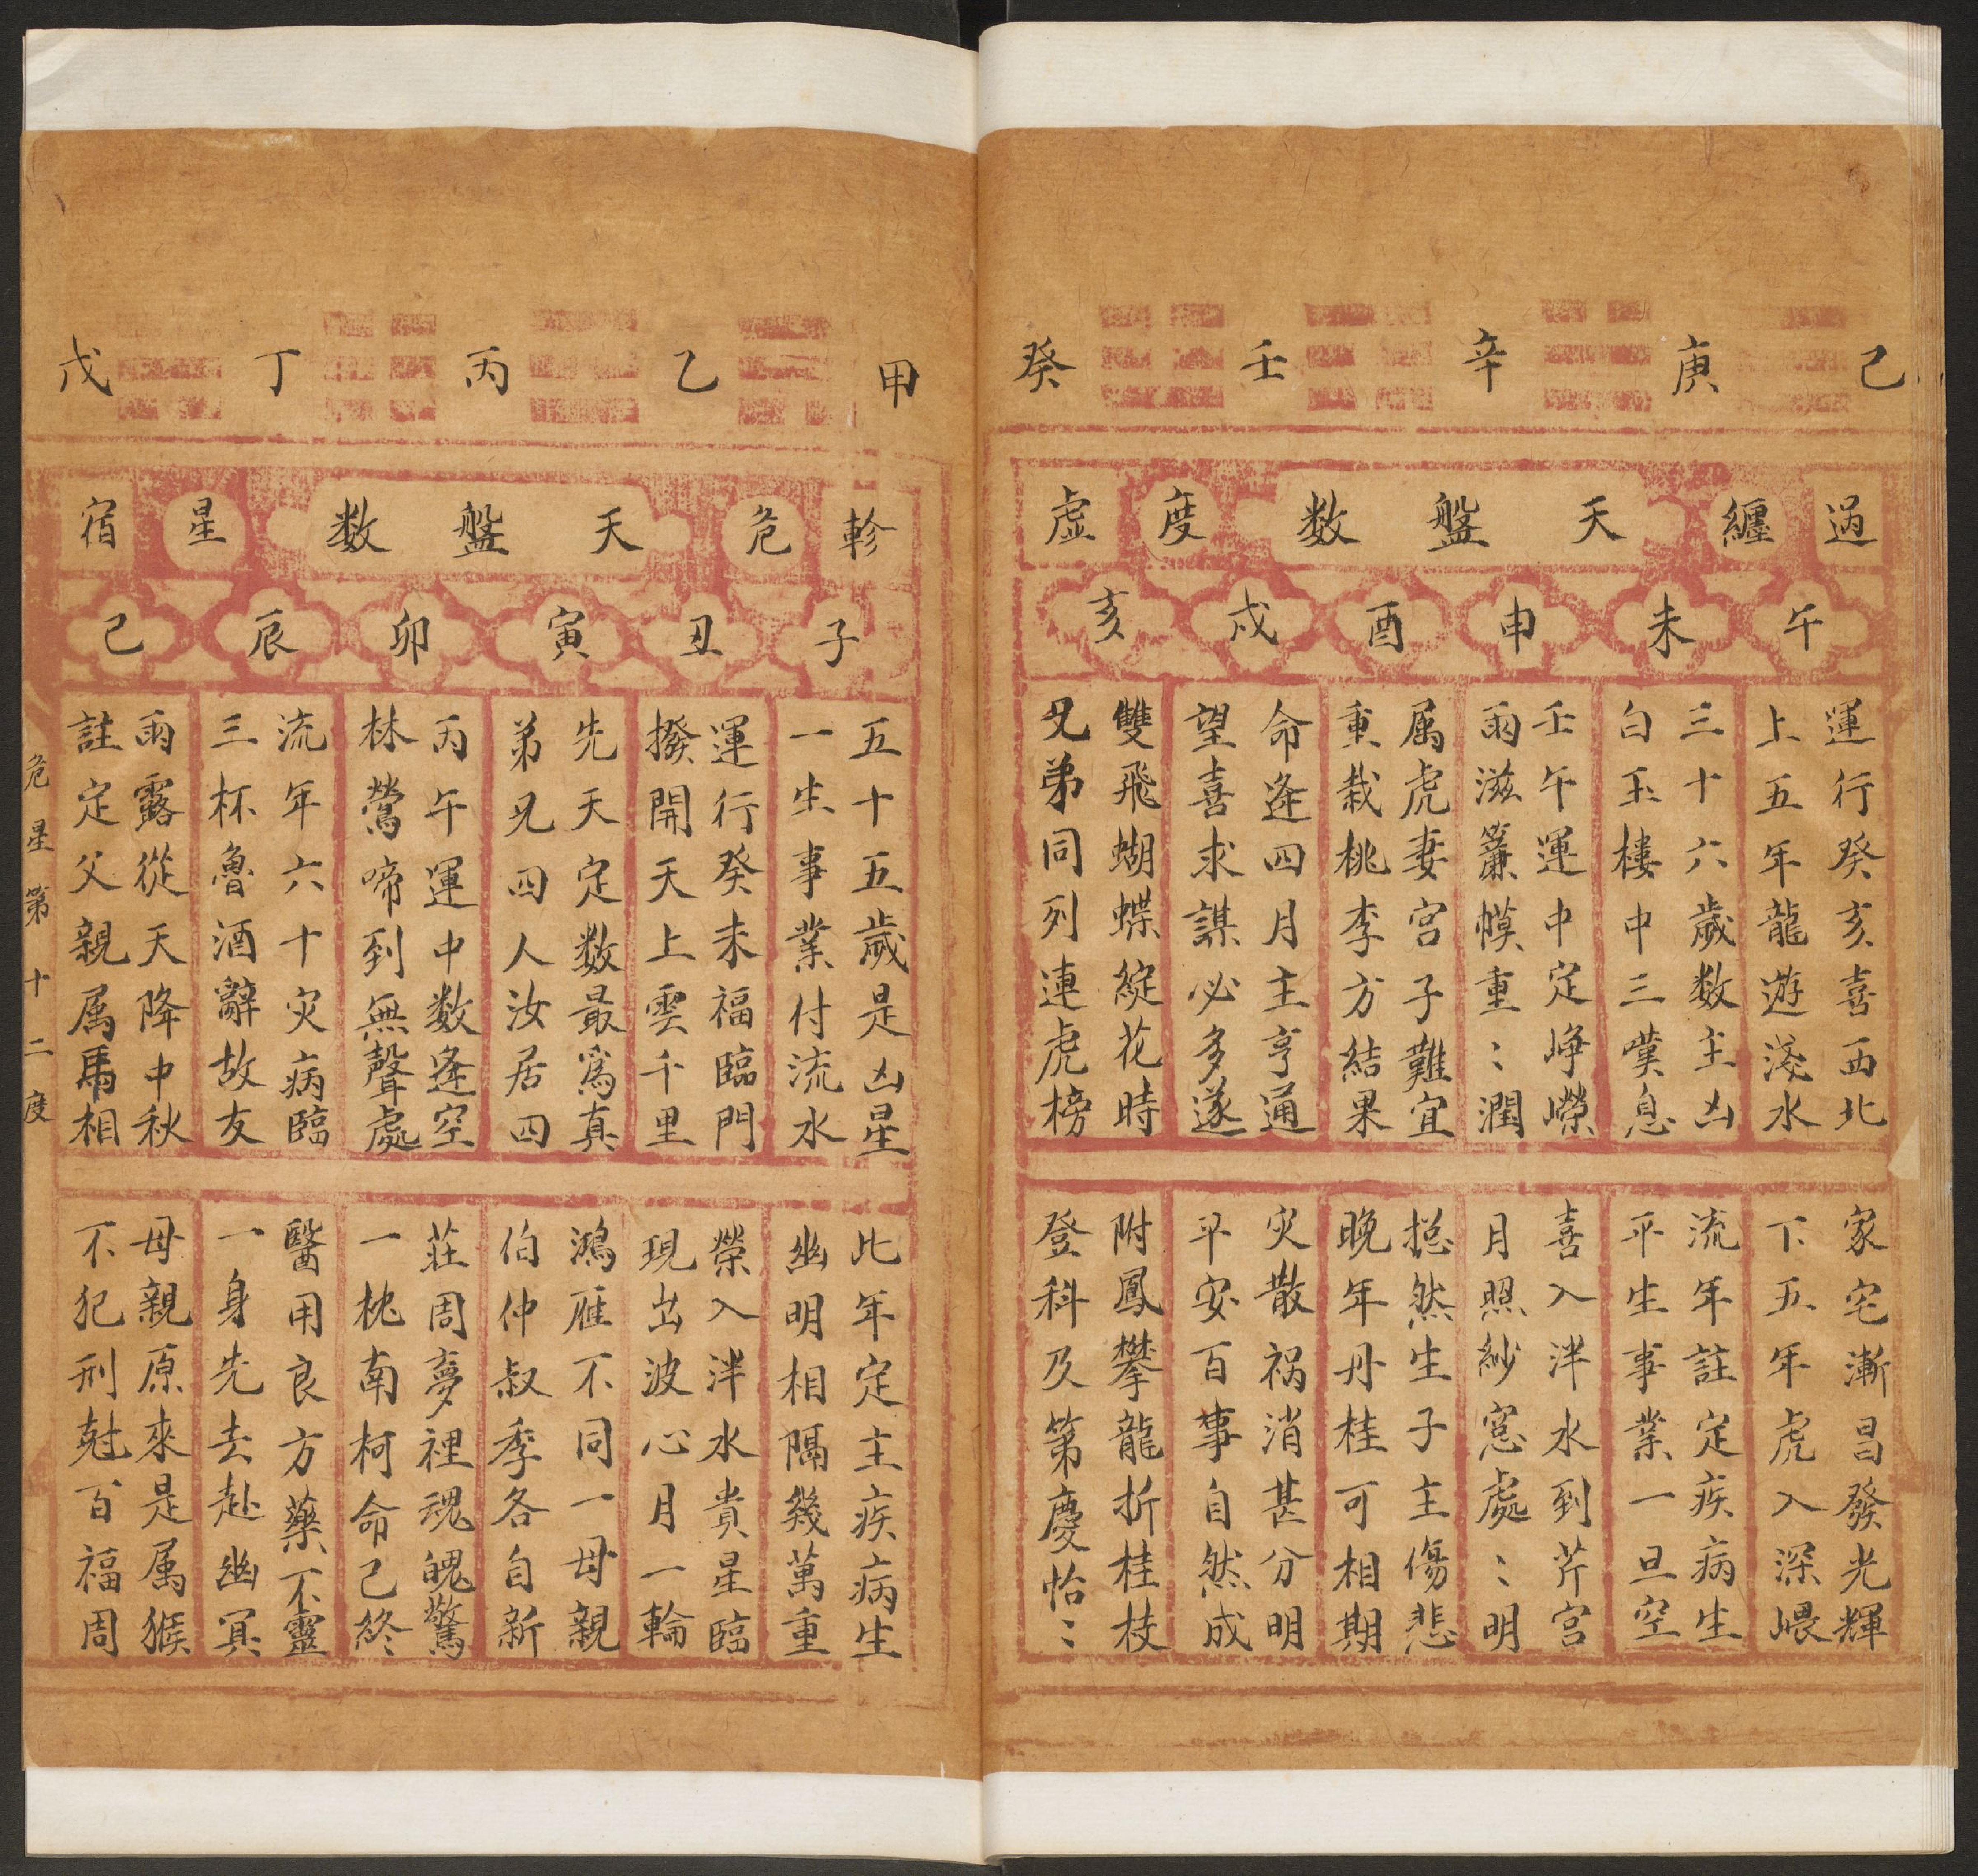 己 庚 辛 壬 癸
過 纏 天盤数 度 虛
午 未 申 酉 戌 亥
運行癸亥喜西北
上五年龍遊淺水
家宅漸昌發光輝
下五年虎入深㟪
三十六歲数主凶
白玉樓中三嘆息
流年註定疾病生
平生事業一旦空
壬午運中定崢嶸
雨滋簾幙重〻潤
喜入泮水到芹宮
月照紗窓處〻明
属虎妻宮子難宜
重栽桃李方結果
揔然生子主傷悲
晚年丹桂可相期
命逄四月主亨通
望喜求謀必多遂
灾散禍消甚分明
平安百事自然成
雙飛蝴蝶綻花時
兄弟同列連虎榜
附鳳攀龍折桂枝
登科及第慶怡〻
甲 乙 丙 丁 戊
軫 危 天盤数 星 宿
子 丑 寅 卯 辰 巳
五十五歲是凶星
一生事業付流水
此年定主疾病生
幽明相隔幾萬重
運行癸未福臨門
撥開天上雲千里
榮入泮水貴星臨
現出波心月一輪
先天定数最爲真
弟兄四人汝居四
鴻雁不同一母親
伯仲叔季各自新
丙午運中数逄空
林鶯啼到無聲處
莊周夢裡魂魄驚
一枕南柯命已終
流年六十灾病臨
三杯魯酒辭故友
醫用良方藥不靈
一身先去赴幽冥
雨露從天降中秋
註定父親属馬相
母親原來是属猴
不犯刑尅百福周
危星第十二度